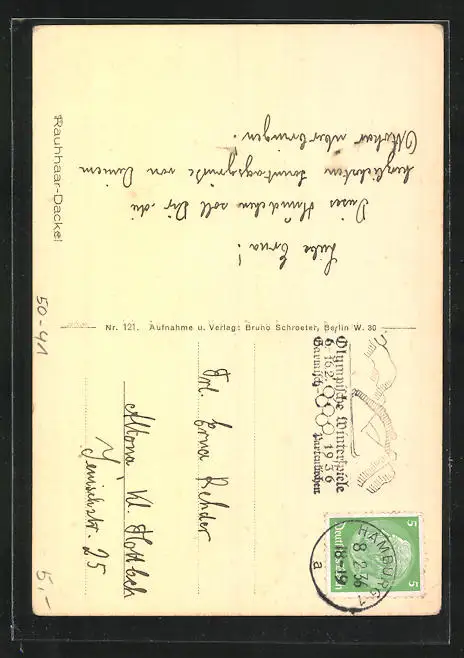 Liebe Erna!
Dieses Hündchen soll Dir die
herzlichsten Sonntagsgrüße von Deinem
Ottokar überbringen.
Rauhhaar-Dackel
Nr. 121. Aufnahme u. Verlag: Bruno Schroeter, Berlin W. 30
Olympische Winterspiele
6.-16.2. 1936
Garmisch-Partenkirchen
5 5
Deutsches Reich
HAMBURG 1
8.2.36
18-19
a
Frl. Erna Rehder
Altona Kl. Flottbek
Jenischstr. 25
50-41
5,-